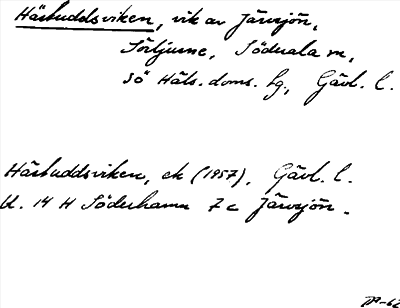 Härbuddsviken, vik av Järvsjön,
Sörljusne, Söderala sn,
Sö Häls. doms. hg., Gävl. l.
Härbuddsviken, ek (1957), Gävl. l.
U. 14 H Söderhamn 7 c Järvsjön.